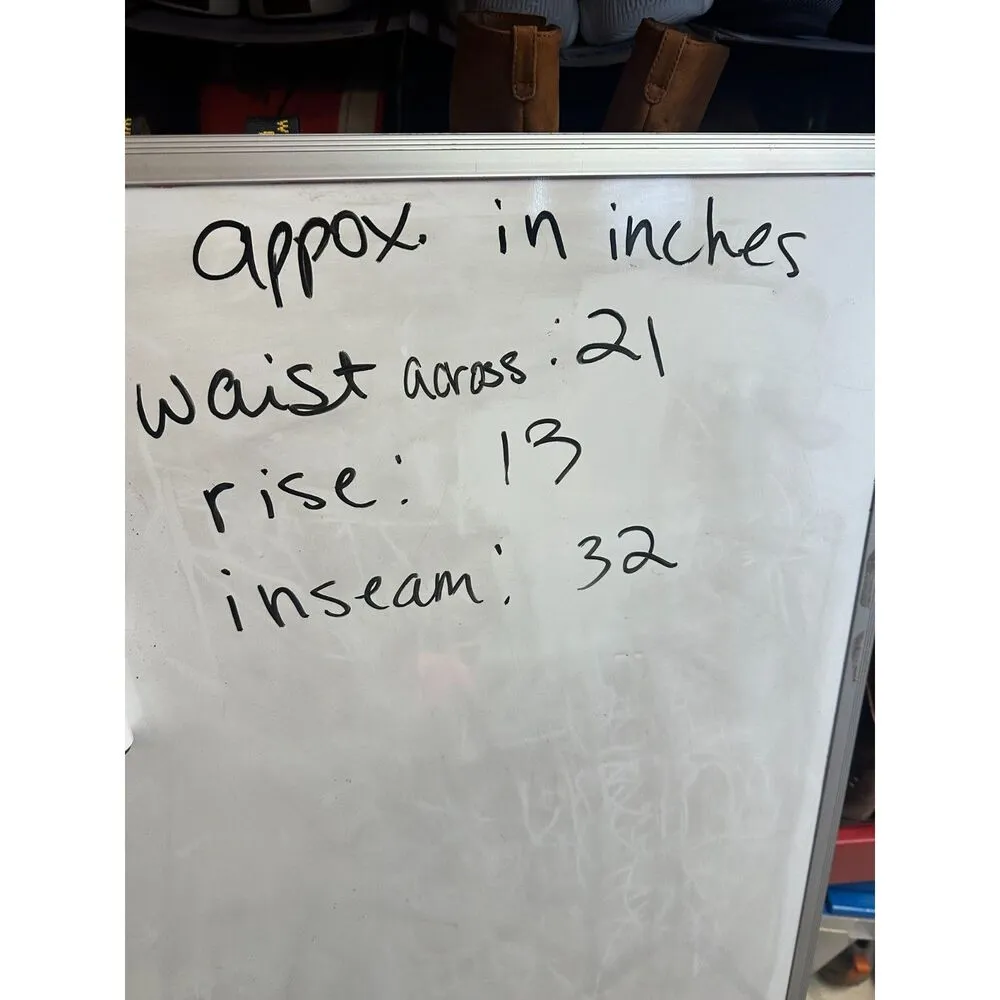 appox. in inches
waist across: 21
rise: 13
inseam: 32